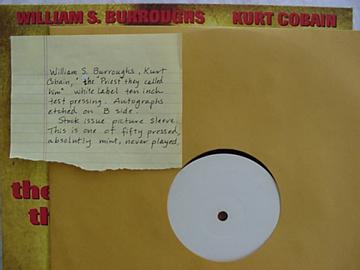 WILLIAM S. BURROUGHS KURT COBAIN
William S. Burroughs, Kurt
Cobain, " the "Priest" they called
him" white label ten inch
test pressing. Autographs
etched on B side.
Stock issue picture sleeve
This is one of fifty pressed,
absolutly mint, never played,
the
th